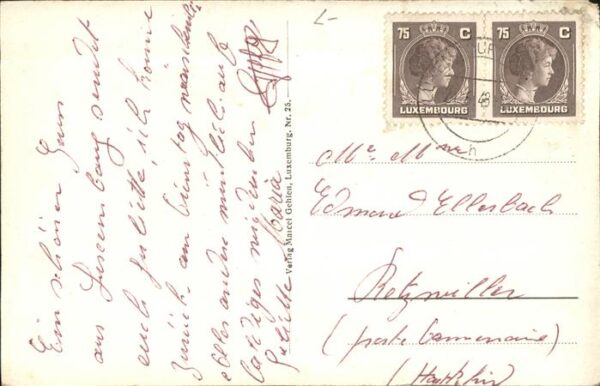 Ein schöner Gruss
aus Luxemburg sendet
euch Juliette, ich komme
zurück am Dienstag
alles andere mündlich. auf
baldiges
Juliette Maria
Verlag Marcel Gehlen, Luxemburg, Nr. 25.
75 C
LUXEMBOURG
75 C
LUXEMBOURG
Mr. Mme
Edmond Ellerbach
Retzwiller
(poste Dannemarie)
(Haut Rhin)